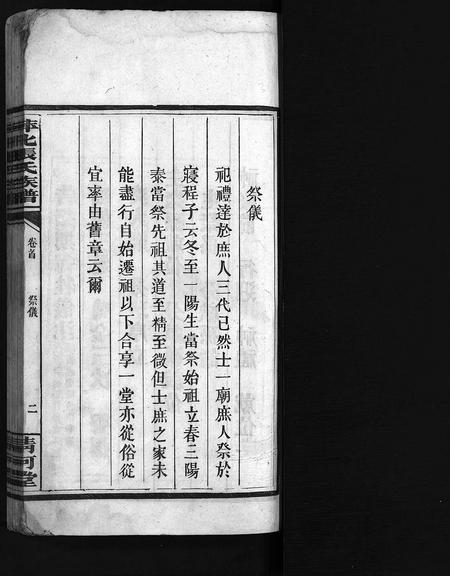 祭儀
祀禮達於庶人三代已然士一廟庶人祭於
寢程子云冬至一陽生當祭始祖立春三陽
泰當祭先祖其道至精至微但士庶之家未
能盡行自始遷祖以下合享一堂亦從俗從
宜率由舊章云爾
萍北張氏族譜
卷首
祭儀
二
清河堂